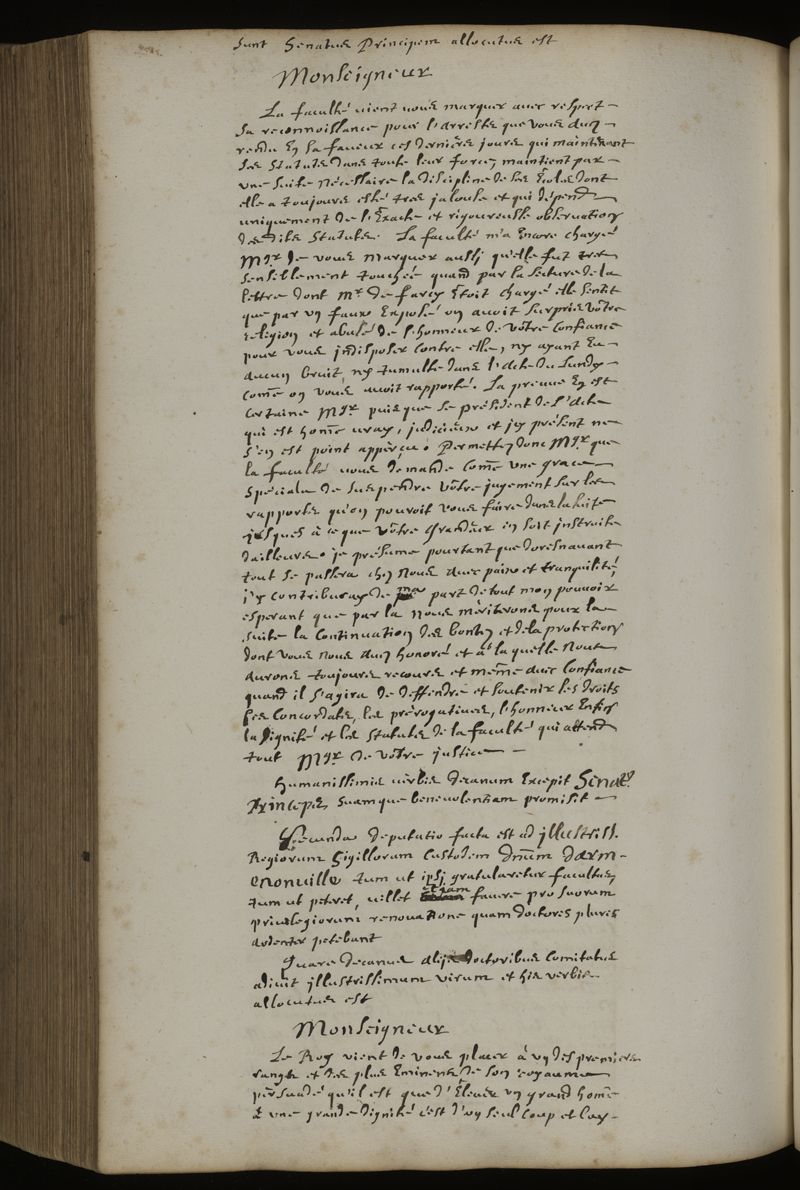 sunt Senatus Principem allocutus est
Monseigneur
La faculté vient vous marquer avec respect
sa reconnoissance pour l'arreste que vous avez
rendu en sa faveur ces dernières jours qui maintenant
ses statuts dans toute leur force, maintient par
une suite nécessaire la discipline de ses Écoles dont
elle a toujours esté tres jalouse et qui dépend
uniquement de l'Exacte et rigoureuse observation
desdits statuts. La faculté m'a Encore chargé
Mgr de vous marquer aussj qu'elle fut tres
sensiblement touchée quand par la lecture de la
lettre dont Mr de farcy Étoit chargé elle sentit
que par un faux Exposé on avoit surpris vôtre
religion et abusé de l'honneur de vôtre confiance
pour vous jndisposer contre elle, ny ayant Eu
aucun bruit, ny tumulte dans l'acte du Lundy
come on vous avoit rapporté. La preuve En est
certaine Mgr puisque le président de l'Acte
qui est home vray, judicieux et jcy présent ne
s'en est point apperçu. Permettez donc Mgr que
la faculté vous demande come une grace
spéciale de suspendre vôtre jugement sur les
rapports qu'on pouroit vous faire dans la suite
jusques à ce que vôtre Grandeur en soit jnstruite
dailleurs. je présume pourtant que doresnavant
tout se passera chez nous avec paix et tranquilité,
j'y contribueray de ma part de tout mon pouvoir
esperant que par la nous mériterons pour la
suite la continuation des bontez et de la protection
dont vous nous avez honoré et a la quelle nous
aurons toujours recours et même avec Confiance
quand il s'agira de deffendre et soutenir les droits
les Concordats, les prérogatives, l'honneur Enfin
la dignité et les statuts de la faculté qui attend
tout Mgr de vôtre justice
Humanissimis verbis decanum Excepit Senat9
Princeps, suamque benevolentiam promisit
Secunda deputatio facta est ad jllustriss.
Regiorum Sigillorum Custodem dnum darm-
enonville tum ut ipsj gratularetur facultas,
tum ut peteret, vellet etiam favere pro suorum
privilegiorum renovatione quam doctores plures
ardenter petebant
Quare decanus alijs doctoribus comitatus
adivit jllustrissimum virum et his verbis
allocutus est
Monseigneur
Le Roy vient de vous placer à un des premiers
rangs et des plus Eminens de son royaume
persuadé qu'il est que d'Élever un grand home
à une grande dignité c'est d'un seul coup et lay-